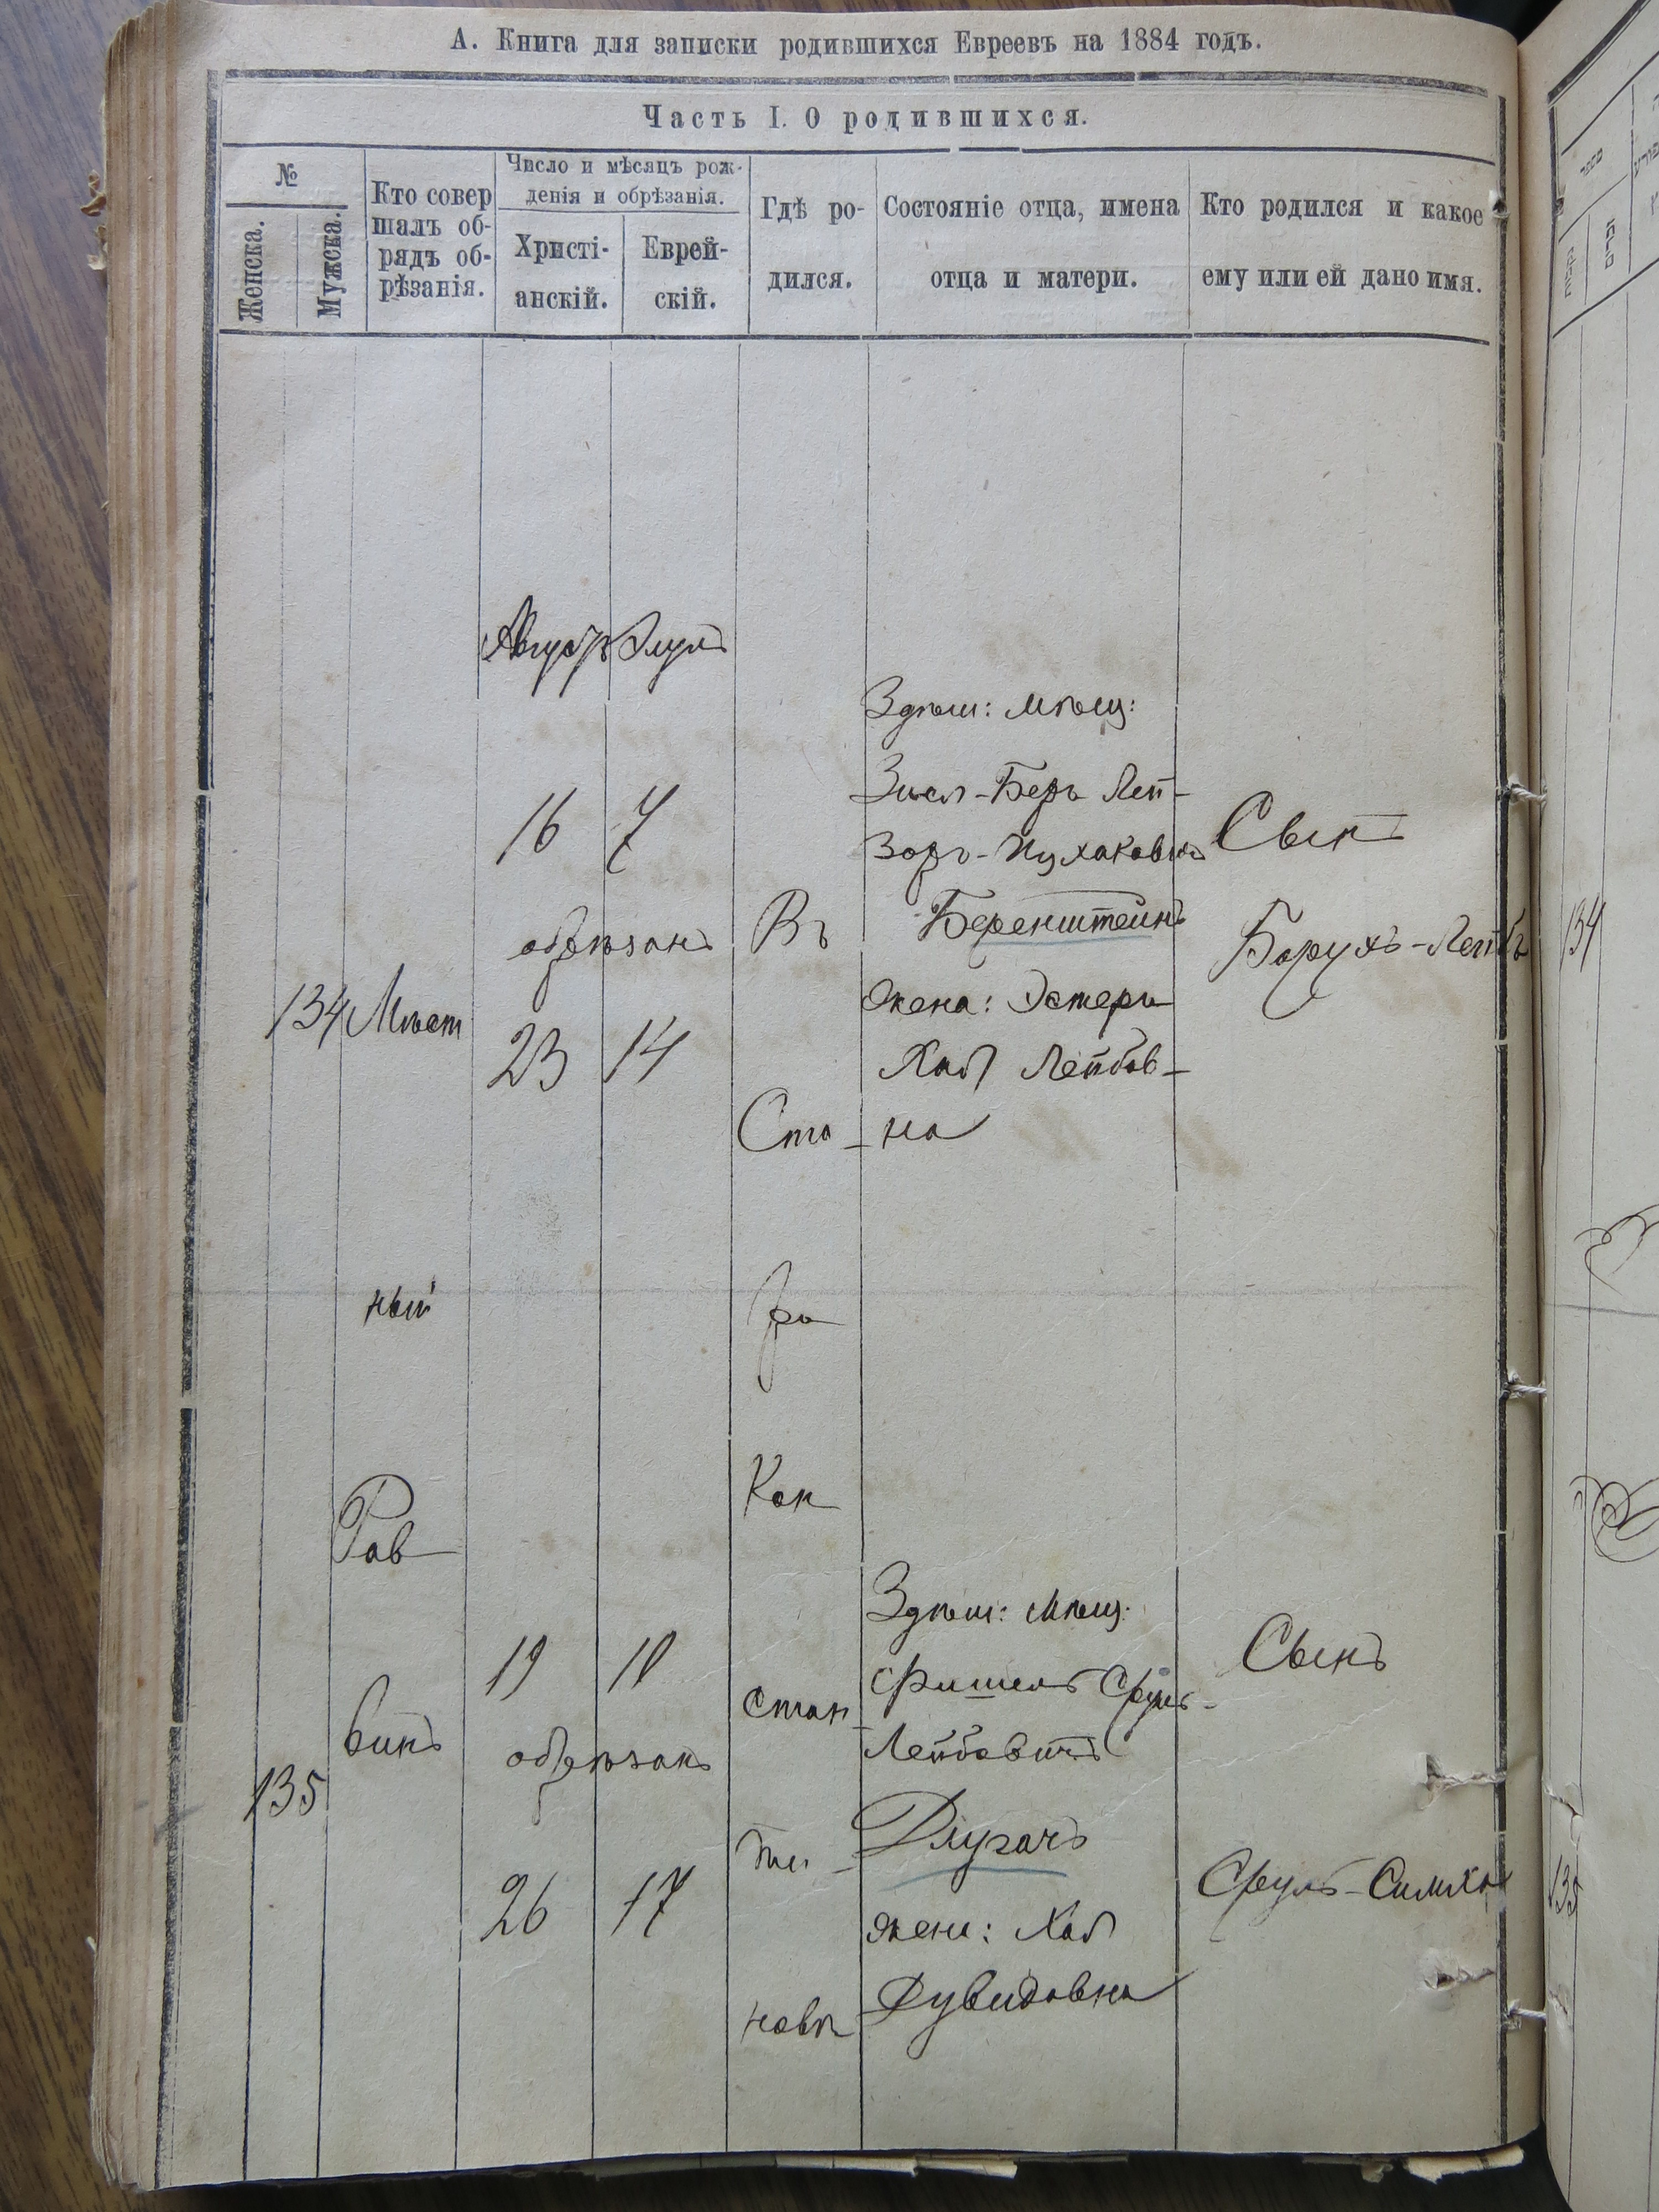 А. Книга для записки родившихся Евреевъ на 1884 годъ.
Часть I. О родившихся.
№
Женска.
Мужска.
Кто совер
шалъ об-
рядъ об-
рѣзанія.
Число и мѣсяцъ рож-
денія и обрѣзанія.
Христі-
анскій.
Еврей-
скій.
Гдѣ ро-
дился.
Состояніе отца, имена
отца и матери.
Кто родился и какое
ему или ей дано имя.
Августъ Элулъ
134
Мѣст
ный
Рав
винъ
16 7
обрѣзанъ
23 14
Въ
Ста-
ро
Кон
стан
ти-
новѣ
Здѣш: мѣщ:
Зисл-Беръ Лей-
зоръ-Ицхаковичъ
Беренштейнъ
Жена: Эстеръ
Хая Лейбов-
на
Сынъ
Борухъ-Лейбъ
134
135
19 10
обрѣзанъ
26 17
Здѣш: мѣщ:
Фишель Сруль-
Лейбовичъ
Длугачъ
жена: Хая
Дувидовна
Сынъ
Сруль-Симха
135